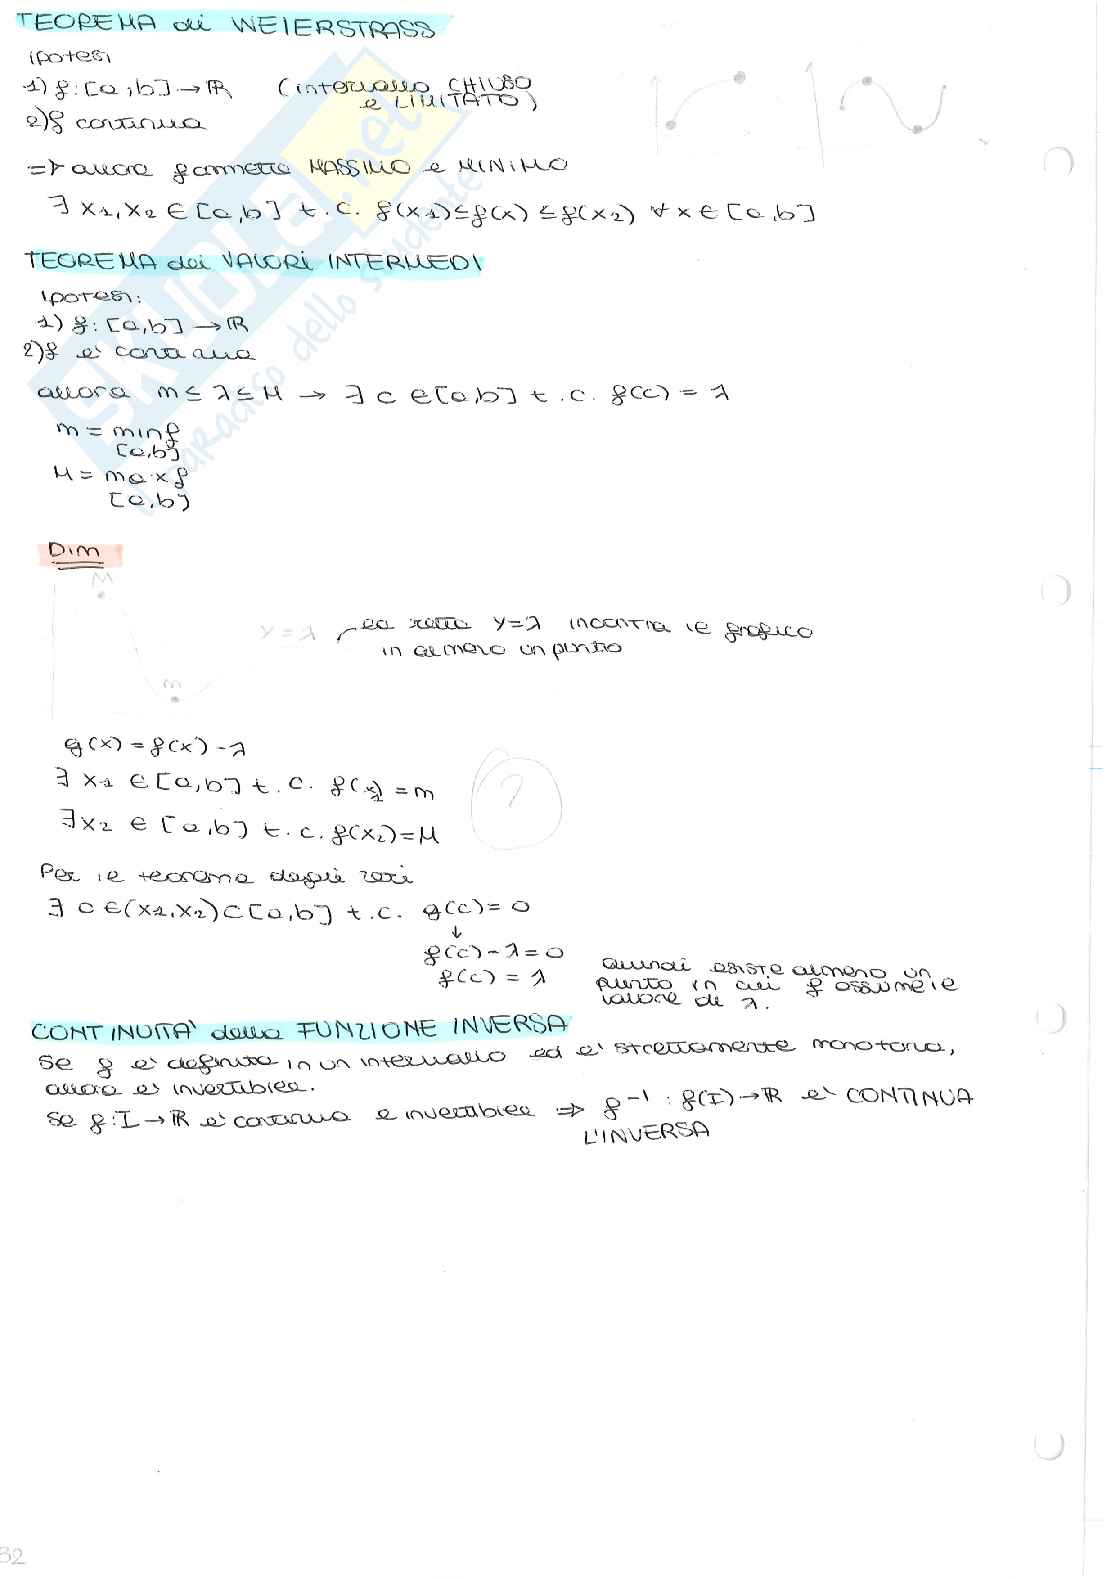 TEOREMA di WEIERSTRASS
ipotesi
1) f: [a,b] → ℝ (intervallo CHIUSO
e LIMITATO)
2) f continua
=> allora f ammette MASSIMO e MINIMO
∃ x1, x2 ∈ [a,b] t.c. f(x1) ≤ f(x) ≤ f(x2) ∀ x ∈ [a,b]
TEOREMA dei VALORI INTERMEDI
Ipotesi:
1) f: [a,b] → ℝ
2) f è continua
allora m ≤ λ ≤ M → ∃ c ∈ [a,b] t.c. f(c) = λ
m = min f
[a,b]
M = max f
[a,b]
Dim
M
y = λ la retta y=λ incontra il grafico
in almeno un punto
m
g(x) = f(x) - λ
∃ x1 ∈ [a,b] t.c. f(x1) = m
?
∃ x2 ∈ [a,b] t.c. f(x2) = M
Per il teorema degli zeri
∃ c ∈ (x1, x2) ⊂ [a,b] t.c. g(c) = 0
↓
f(c) - λ = 0
f(c) = λ
quindi esiste almeno un
punto in cui f assume il
valore di λ.
CONTINUITA' della FUNZIONE INVERSA
Se f è definita in un intervallo ed è strettamente monotona,
allora è invertibile.
Se f: I → ℝ è continua e invertibile => f⁻¹ : f(I) → ℝ è CONTINUA
L'INVERSA
32
SKUOLA.net
il paradiso dello studente